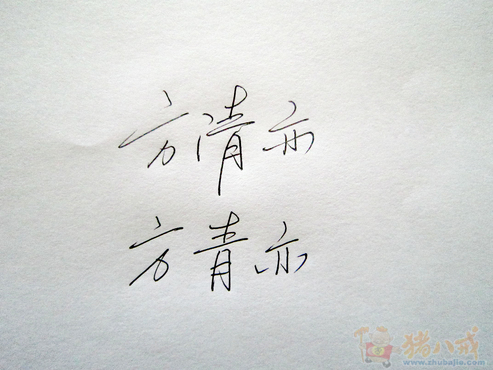 方清亦
方青亦
猪八戒
www.zhubajie.com